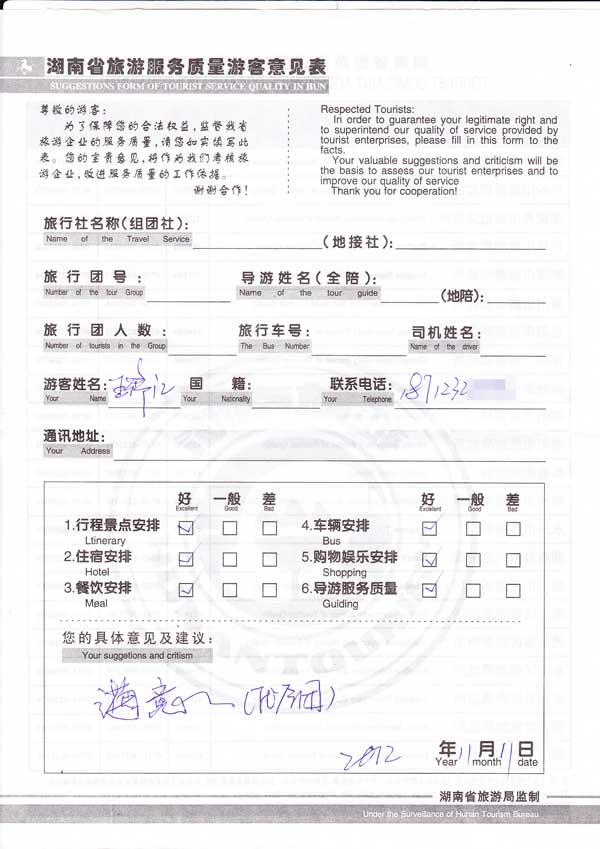 湖南省旅游服务质量游客意见表
SUGGESTIONS FORM OF TOURIST SERVICE QUALITY IN HUN
尊敬的游客：
为了保障您的合法权益，监督我省
旅游企业的服务质量，请您如实填写此
表。您的宝贵意见，将作为我们考核旅
游企业，改进服务质量的工作依据。
谢谢合作！
Respected Tourists:
In order to guarantee your legitimate right and
to superintend our quality of service provided by
tourist enterprises, please fill in this form to the
facts.
Your valuable suggestions and criticism will be
the basis to assess our tourist enterprises and to
improve our quality of service
Thank you for cooperation!
旅行社名称（组团社）： （地接社）：
Name of the Travel Service
旅行团号： 导游姓名（全陪）： （地陪）：
Number of the tour Group Name of the tour guide
旅行团人数： 旅行车号： 司机姓名：
Number of tourists in the Group The Bus Number Name of the driver
游客姓名： 国籍： 联系电话： 1871232
Your Name Your Nationality Your Telephone
通讯地址：
Your Address
好 一般 差 好 一般 差
Excellent Good Bad Excellent Good Bad
1.行程景点安排 4.车辆安排
Ltinerary Bus
2.住宿安排 5.购物娱乐安排
Hotel Shopping
3.餐饮安排 6.导游服务质量
Meal Guiding
您的具体意见及建议：
Your suggetions and critism
满意
2012 年 11 月 11 日
Year month date
湖南省旅游局监制
Under the Surveillance of Hunan Tourism Bureau